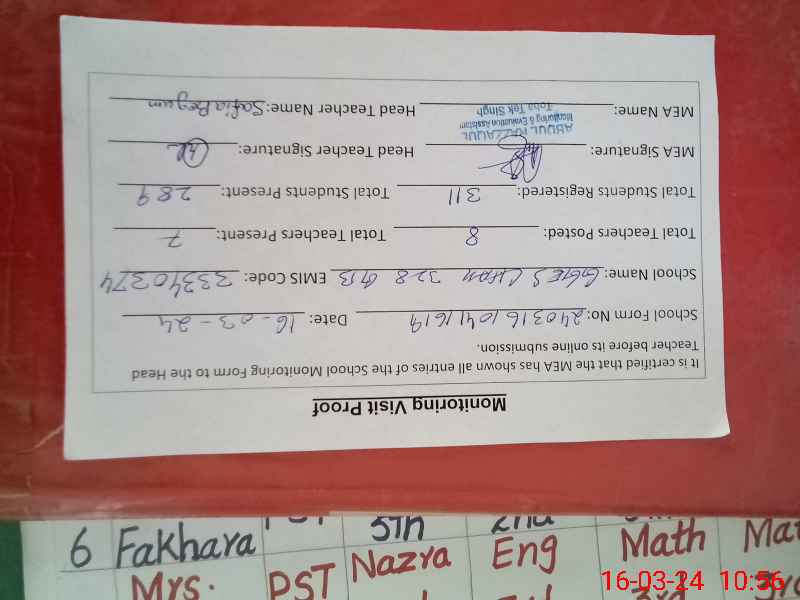 Monitoring Visit Proof
It is certified that the MEA has shown all entries of the School Monitoring Form to the Head
Teacher before its online submission.
School Form No: 240316104116 19 Date: 16-03-24
School Name: GGES CHAK 328 GB EMIS Code: 33340374
Total Teachers Posted: 8 Total Teachers Present: 7
Total Students Registered: 311 Total Students Present: 289
MEA Signature: Head Teacher Signature:
MEA Name: ABDUL RAZZAQ Head Teacher Name: Safia Begum
Monitoring & Evaluation Assistant
Toba Tek Singh
6 Fakhara 5th 2nd
Nazra Eng Math
Mrs. PST 3rd
16-03-24 10:56